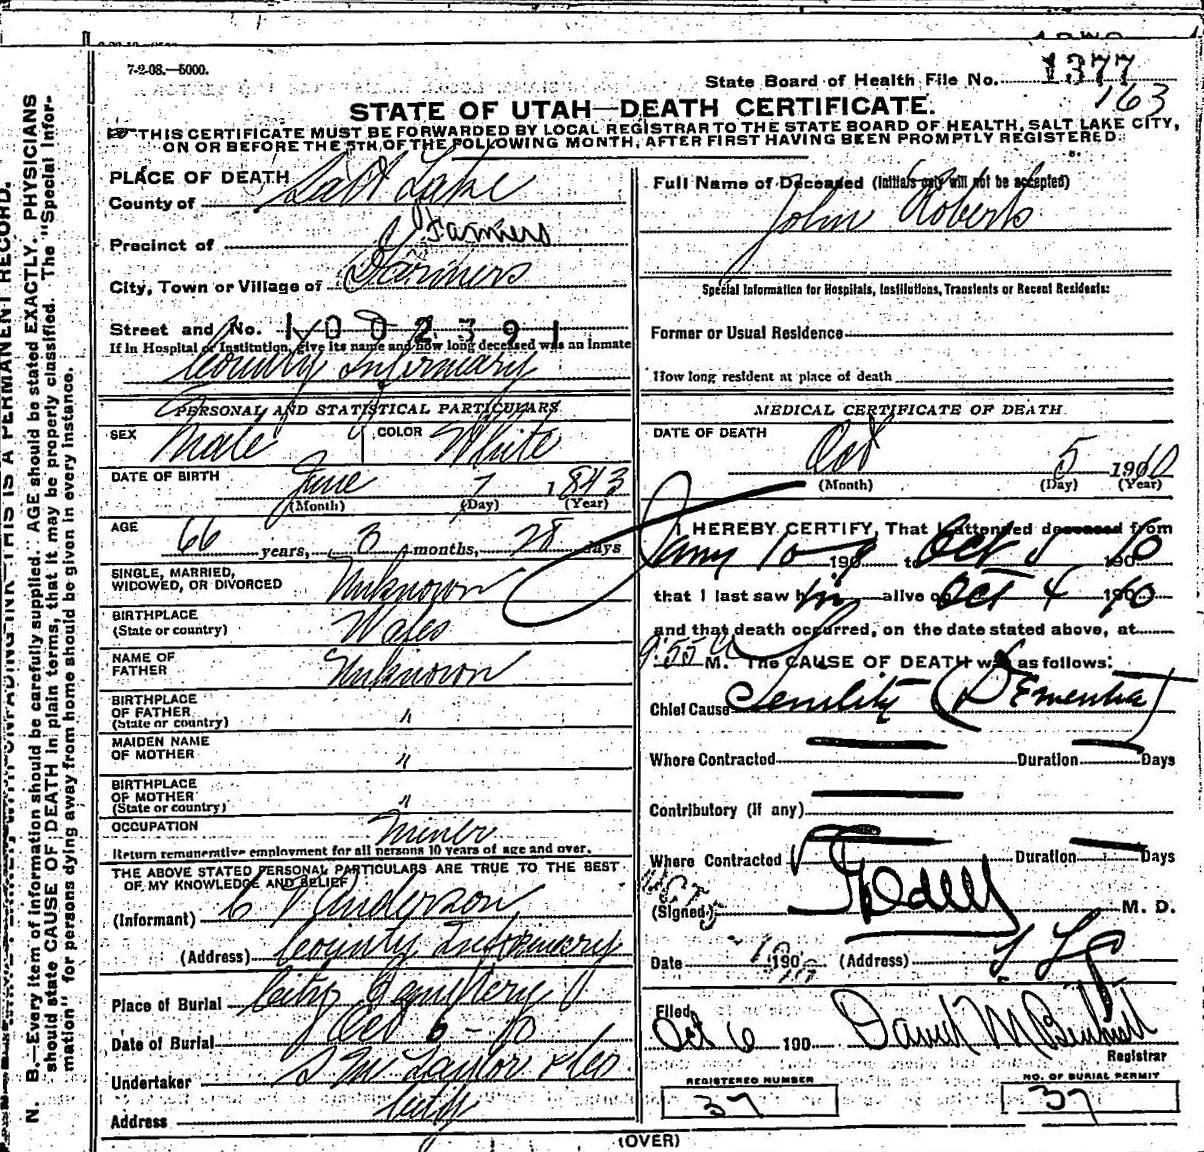 7-2-08.—5000.
State Board of Health File No. 1377
163
STATE OF UTAH—DEATH CERTIFICATE.
THIS CERTIFICATE MUST BE FORWARDED BY LOCAL REGISTRAR TO THE STATE BOARD OF HEALTH, SALT LAKE CITY,
ON OR BEFORE THE 5TH OF THE FOLLOWING MONTH, AFTER FIRST HAVING BEEN PROMPTLY REGISTERED.
PLACE OF DEATH
County of Salt Lake
Precinct of Farmers
City, Town or Village of Farmers
Street and No. 1002391
If in Hospital or Institution, give its name and how long deceased was an inmate
County Infirmary
PERSONAL AND STATISTICAL PARTICULARS
SEX Male COLOR White
DATE OF BIRTH June 7 1843
(Month) (Day) (Year)
AGE 66 years, 3 months, 28 days
SINGLE, MARRIED,
WIDOWED, OR DIVORCED Unknown
BIRTHPLACE
(State or country) Wales
NAME OF
FATHER Unknown
BIRTHPLACE
OF FATHER
(State or country) "
MAIDEN NAME
OF MOTHER "
BIRTHPLACE
OF MOTHER
(State or country) "
OCCUPATION Miner
Return remunerative employment for all persons 10 years of age and over.
THE ABOVE STATED PERSONAL PARTICULARS ARE TRUE TO THE BEST
OF MY KNOWLEDGE AND BELIEF
(Informant) C Anderson
(Address) County Infirmary
Place of Burial City Cemetery
Date of Burial Oct 6-10
Undertaker S M Taylor & Co.
Address City
Full Name of Deceased (Initials only will not be accepted)
John Roberts
Special Information for Hospitals, Institutions, Transients or Recent Residents:
Former or Usual Residence
How long resident at place of death
MEDICAL CERTIFICATE OF DEATH
DATE OF DEATH
Oct 5 1910
(Month) (Day) (Year)
I HEREBY CERTIFY, That I attended deceased from
Jany 10 190 9 to Oct 5 190 10
that I last saw him alive on Oct 4 190 10
and that death occurred, on the date stated above, at
9:55 M. The CAUSE OF DEATH was as follows:
Chief Cause Senility (Dementia)
Where Contracted Duration Days
Contributory (if any)
Where Contracted Duration Days
Oct 5
(Signed) M. D.
Date 190 (Address) S L Co
Filed
Oct 6 190 David M
Registrar
REGISTERED NUMBER
37
NO. OF BURIAL PERMIT
37
(OVER)
N. B.—Every item of information should be carefully supplied. AGE should be stated EXACTLY. PHYSICIANS
should state CAUSE OF DEATH in plain terms, that it may be properly classified. The "Special Infor-
mation" for persons dying away from home should be given in every instance.
THIS IS A PERMANENT RECORD.